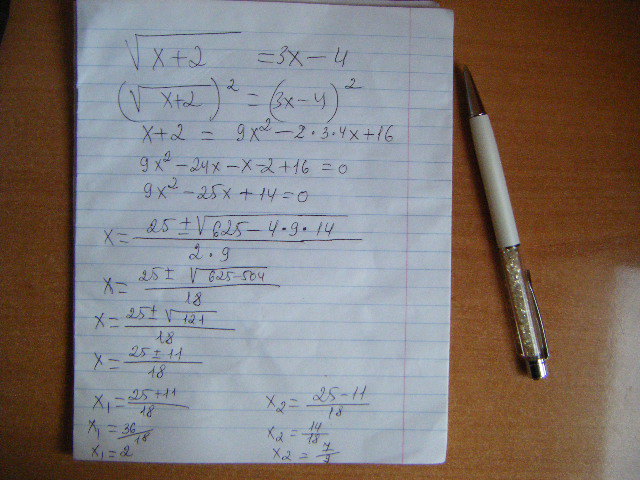 √(x+2) = 3x - 4
(√(x+2))² = (3x-4)²
x+2 = 9x² - 2·3·4x + 16
9x² - 24x - x - 2 + 16 = 0
9x² - 25x + 14 = 0
x = (25 ± √(625 - 4·9·14)) / (2·9)
x = (25 ± √(625-504)) / 18
x = (25 ± √121) / 18
x = (25 ± 11) / 18
x₁ = (25+11) / 18    x₂ = (25-11) / 18
x₁ = 36/18    x₂ = 14/18
x₁ = 2    x₂ = 7/9